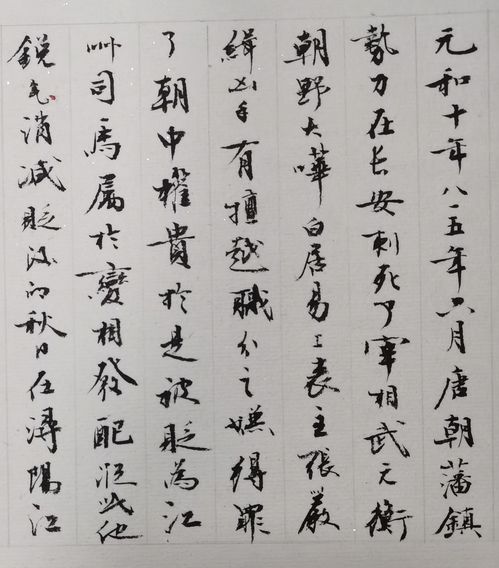 元和十年八一五年六月唐朝藩鎮
勢力在長安刺死了宰相武元衡
朝野大嘩白居易上表主張嚴
緝凶手有擅越職分之嫌得罪
了朝中權貴於是被貶為江
州司馬屬於變相發配從此他
銳氣消減貶後的秋日在潯陽江